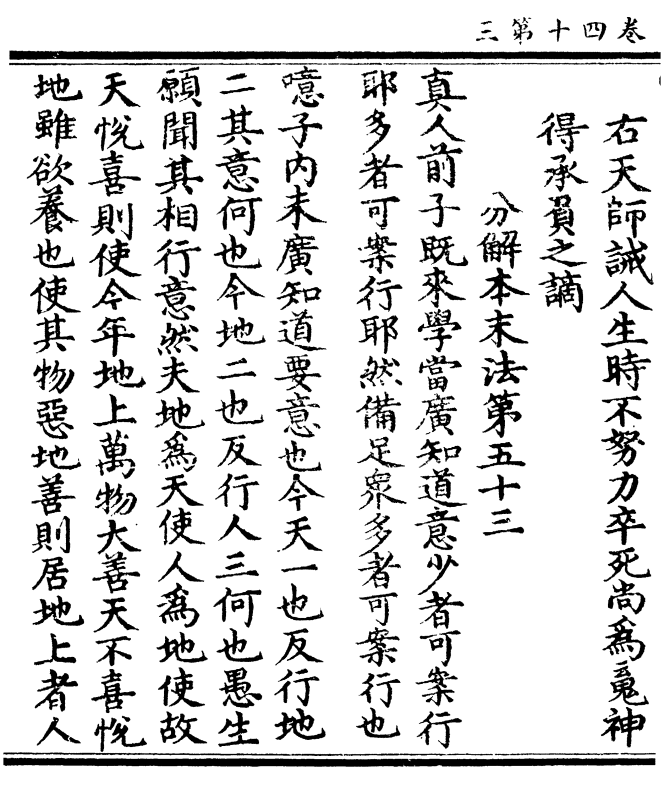 卷四十第三
右天師誡人生時不努力卒死尚爲鬼神
得承負之謫
分解本末法第五十三
真人前子既來學當廣知道意少者可案行
耶多者可案行耶然備足衆多者可案行也
噫子内未廣知道要意也今天一也反行地
二其意何也今地二也反行人三何也愚生
願聞其相行意然夫地爲天使人爲地使故
天悅喜則使今年地上萬物大善天不喜悅
地雖欲養也使其物惡地善則居地上者人